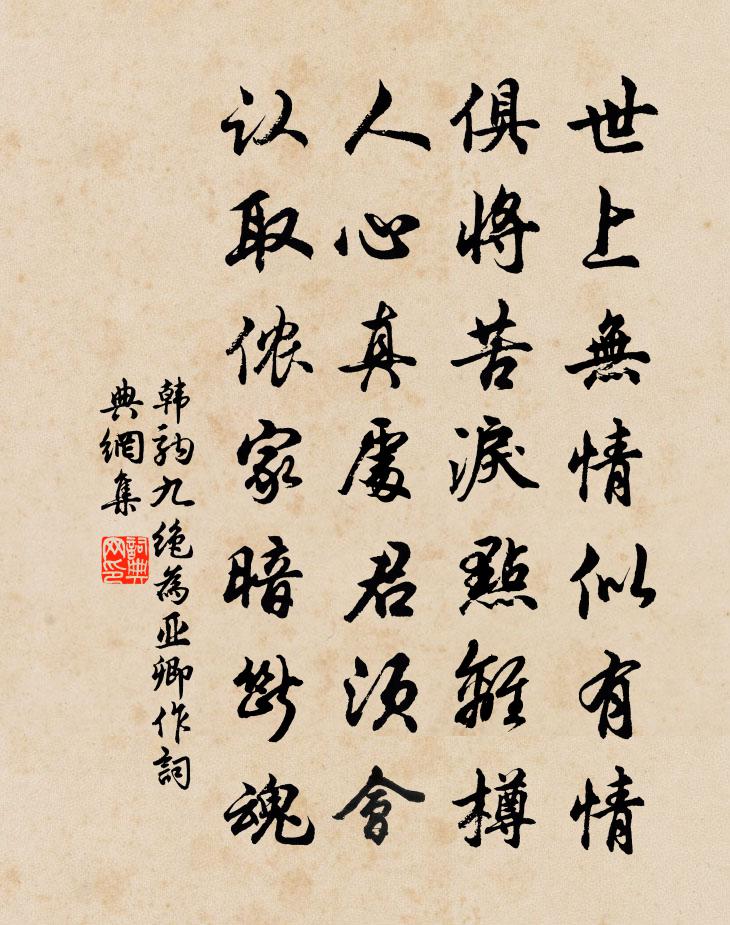 世上無情似有情
俱將苦淚點離樽
人心真處君須會
认取侬家暗斷魂
韩駒九絶為亚卿作詞
典網集
詞典
网印